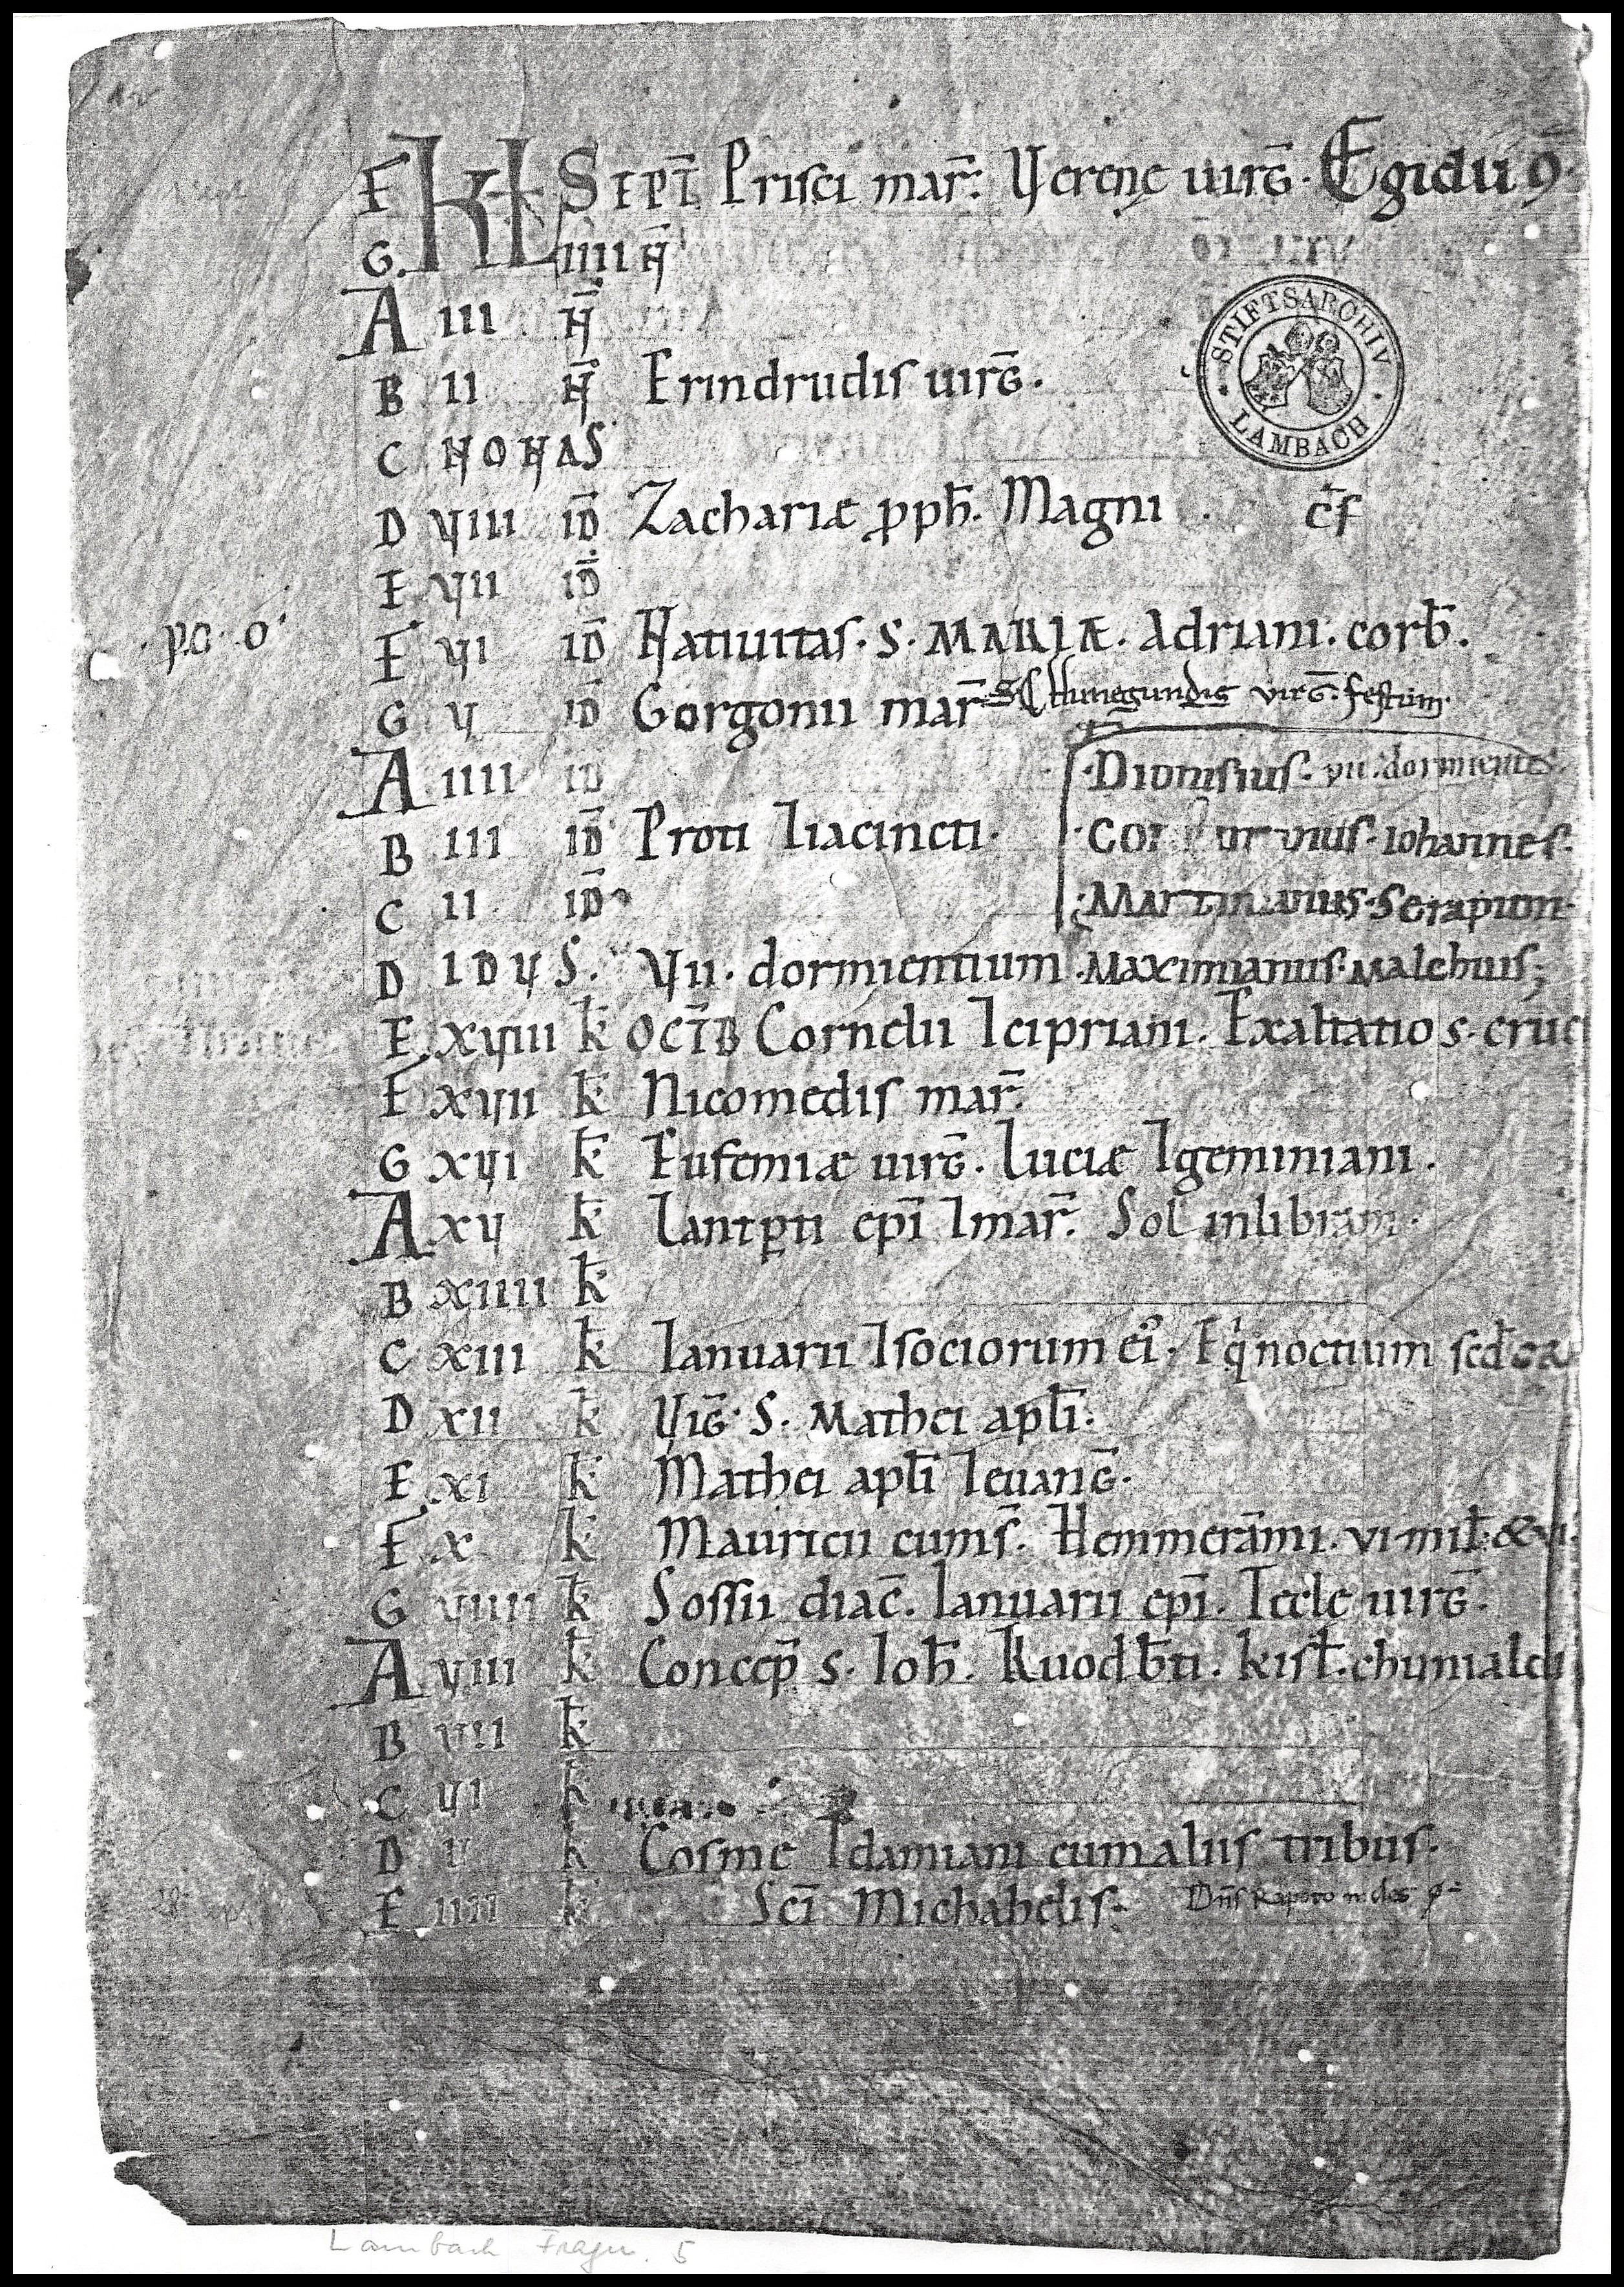 F KL SEPT̄ Prisci mar̄. Verenę uirḠ. Egidii ꝯ.
G IIII N̄
A III N̄
STIFTSARCHIV LAMBACH
B II N̄ Erindrudis uirḠ.
C NONAS
D VIII ID̄ Zachariæ ꝓph̄. Magni . c̄f
E VII ID̄
p.a. o'
F VI ID̄ Natiuitas. S. MARIÆ. Adriani. corb̄.
G V ID̄ Gorgonii mar̄ Sc̄ę Hunegundis virḠ. festum.
A IIII ID̄ Dionisius. vii. dormientes.
B III ID̄ Proti ⁊iacincti. Iohannes.
C II ID̄ Martinianus. Serapion.
D IDVS. VII. dormientium. Maximianus. Malchus;
E XVIIII k̄ OCT̄B Cornelii ⁊cipriani. Exaltatio s. cruci
F XVII k̄ Nicomedis mar̄.
G XVI k̄ Eufemiæ uirḠ. Luciæ ⁊geminiani.
A XV k̄ Lantꝑti ep̄i ⁊mar̄. Sol inlibram.
B XIIII k̄
C XIII k̄ Ianuarii ⁊sociorum ei᷒. Eq̇noctium scd̄
D XII k̄ ViḠ. S. Mathei apl̄i.
E XI k̄ Mathei apl̄i ⁊euanḠ.
F X k̄ Mauricii cums̄. Hemmerāmi. vi. mil̄. & vi.
G VIIII k̄ Sossii diac̄. Ianuarii ep̄i. Tecle uirḠ.
A VIII k̄ Concep̄ s. Ioh̄. Ruodb̄ti. kisl̄. chunialdi
B VII k̄
C VI k̄
D V k̄ Cosme ⁊damiani cum aliis tribus.
E IIII k̄ Sc̄i Michahelis. Dn̄s Rapoto
Lambach Fragm. 5